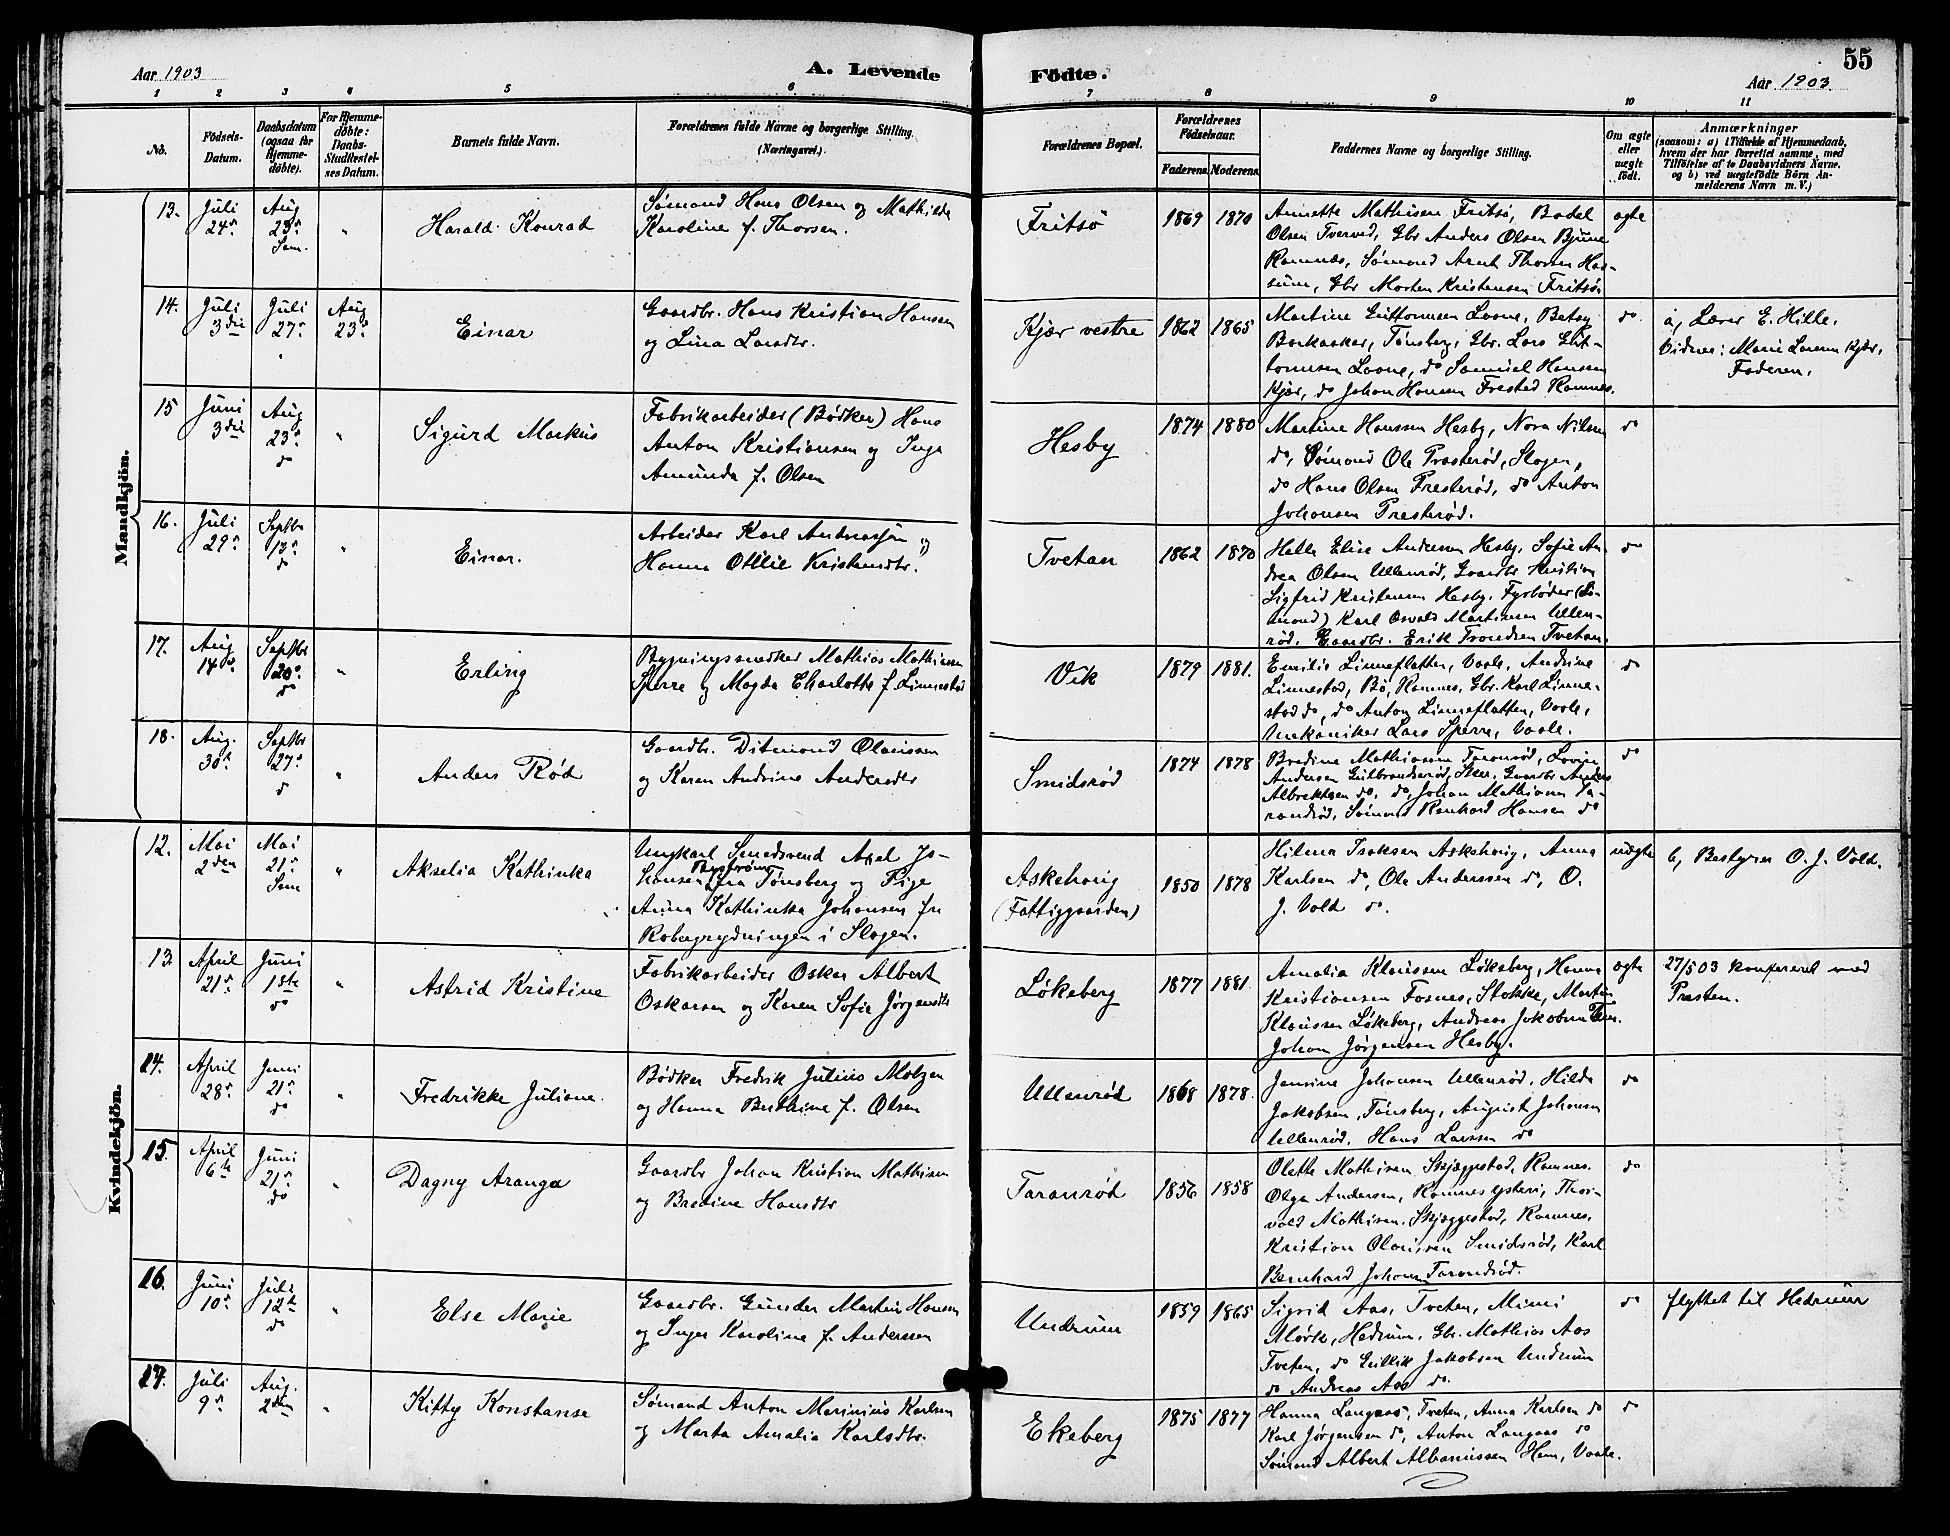 Aar 1903
A. Levende
Födte.
Aar 1903
55
1 2 3 4 5 6 7 8 9 10 11
No.
Födsels-
Datum.
Daabsdatum
(ogsaa for
Hjemme-
döbte).
For Hjemme-
döbte:
Daabs-
Stadfæstel-
ses Datum.
Barnets fulde Navn.
Forældrenes fulde Navne og borgerlige Stilling.
(Næringsvei.)
Forældrenes Bopæl.
Forældrenes
Födselsaar.
Faderens. Moderens.
Faddernes Navne og borgerlige Stilling.
Om ægte
eller
uægte
födt.
Anmærkninger
(saasom: a) i Tilfælde af Hjemmedaab,
hvem der har forrettet samme, med
Tilföielse af to Daabsvidners Navne.
og b) ved uægtefödte Börn An-
melderens Navn m. V.)
Mandkjön.
13.
Juli
24de
Aug
23de
Søm.
"
Harald Konrad
Sømand Hans Olsen og Mathilde
Karoline f. Thorsen.
Fritsø
1869 1870
Annette Mathisen Fritsø, Bodel
Olsen Tverved, Gbr Anders Olsen Bjune
Ramnæs, Sømand Arnt Thorsen Has-
sum, Gbr Morten Kristensen Fritsø.
ægte
14.
Juli
3die
Juli
27de
Aug
23de
Einar
Gaardbr. Hans Kristian Hansen
og Lina Larsdtr.
Kjær vestre
1862 1865
Martine Guttormsen Lovne, Betsy
Barkaaker, Tønsberg, Gbr. Lars Gut-
tormsen Lovne, do Samuel Hansen
Kjær, do Johan Hansen Frestad Ramnes.
do
a, Lærer E. Hille.
Vidner: Marie Larsen Kjær,
Faderen.
15
Juni
3die
Aug
23de
do
"
Sigurd Markus
Fabrikarbeider (Bødker) Hans
Anton Kristiansen og Inga
Amunda f. Olsen
Hesby
1874 1880
Martine Hansen Hesby, Nora Nilsen
do, Sømand Ole Præsterød, Slagen,
do Hans Olsen Presterød, do Anton
Johansen Presterød.
do
16.
Juli
29de
Septbr
13de
do
"
Einar.
Arbeider Karl Andreassen og
Hanna Ottilie Kristensdtr.
Tvetan
1862 1870
Helle Elise Andersen Hesby, Sofie An-
drea Olsen Ullenrød, Gaardbr Kristian
Sigfrid Kristensen Hesby. Fyrbøder (Sø-
mand) Karl Osvald Martinsen Ullen-
rød. Gaardbr. Erik Trondsen Tvetan.
do
17.
Aug
14de
Septbr
20de
do
"
Erling
Bygningssnedker Mathias Mathisen
Sperre og Magda Charlotte f. Linnestad
Vik
1879 1881.
Emilie Linneflatten, Vaale, Andrine
Linnestad, Bø, Ramnes, Gbr. Karl Linne-
stad do, do Anton Linneflatten, Vaale,
Mekaniker Lars Sperre, Vaale.
do
18.
Aug.
30te
Septbr
27de
do
"
Anders Rød
Gaardbr. Ditmand Olausen
og Karen Andrine Andersdtr
Smidsrød
1874 1878
Bredine Mathiassen Taranrød, Lovise
Andersen Gulbrandsrød, Skee, Gaardbr Anders
Albrektsen do, do, Johan Mathisen Ta-
randrød, Sømand Renhard Hansen do
do
Kvindekjön.
12.
Mai
2den
Mai
21de
Søm
"
Akselia Kathinka
Ungkarl Smedsvend Axel Jo-
hansen Bystrøm fra Tønsberg og Pige
Anna Kathinka Johansen fra
Robergrydningen i Slagen.
Askehoug
(Fattiggaarden)
1850 1878
Hilma Isaksen Askehoug, Anna
Karlsen do, Ole Anderssen do, O.
J. Vold do.
uægte
b, Bestyrer O. J. Vold.
13.
April
21de
Juni
1ste
do
"
Astrid Kristine
Fabrikarbeider Oskar Albert
Oskarsen og Karen Sofie Jørgensdtr
Løkeberg
1877 1881.
Amalia Klaussen Løkeberg, Hanna
Kristiansen Fosnes, Stokke, Martin
Klaussen Løkeberg, Andreas Jakobsen
Johan Jørgensen Hesby.
ægte
27/5 03 konfereret med
Præsten.
14.
April
28de
Juni
21de
do
"
Fredrikke Juliane.
Bødker Fredrik Julius Molzen
og Hanna Berthine f. Olsen
Ullenrød
1868 1878.
Jensine Johansen Ullenrød, Hilda
Jakobsen, Tønsberg, August Johansen
Ullenrød, Hans Larssen do
do
15.
April
6te
Juni
21de
do
"
Dagny Aranga
Gaardbr Johan Kristian Mathisen
og Bredine Hansdtr
Taranrød
1856 1858
Olette Mathisen Skjæggestad, Ramnes.
Olga Andersen, Ramnes ysteri, Thor-
vald Mathisen. Skjæggestad, Ramnes.
Kristian Olaussen Smidsrød, Karl
Bernhard Johansen Tarandrød.
do
16.
Juni
10de
Juli
12te
do
"
Else Marie
Gaardbr. Gunder Martin Hansen
og Inger Karoline f. Anderssen
Undrum
1859 1865
Sigrid Aas, Tveten, Mimi
Mørk, Hedrum, Gbr. Mathias Aas
Tveten, do Gullik Jakobsen Undrum
do Andreas Aas do.
do
flyttet til Hedrum
17.
Juli
9de
Aug.
2den
"
Kitty Konstanse
Sømand Anton Marinius Karlsen
og Marta Amalia Karlsdtr.
Ekeberg
1875 1877
Hanna Langaas, Tveten, Anna Karlsen do
Karl Jørgensen do, Anton Langaas do
Sømand Albert Albaniussen Hem, Vaale.
do